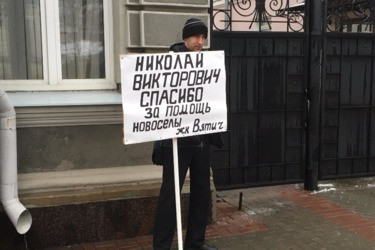 НИКОЛАЙ
ВИКТОРОВИЧ
СПАСИБО
ЗА ПОМОЩЬ
НОВОСЕЛЫ ЖК Вятич